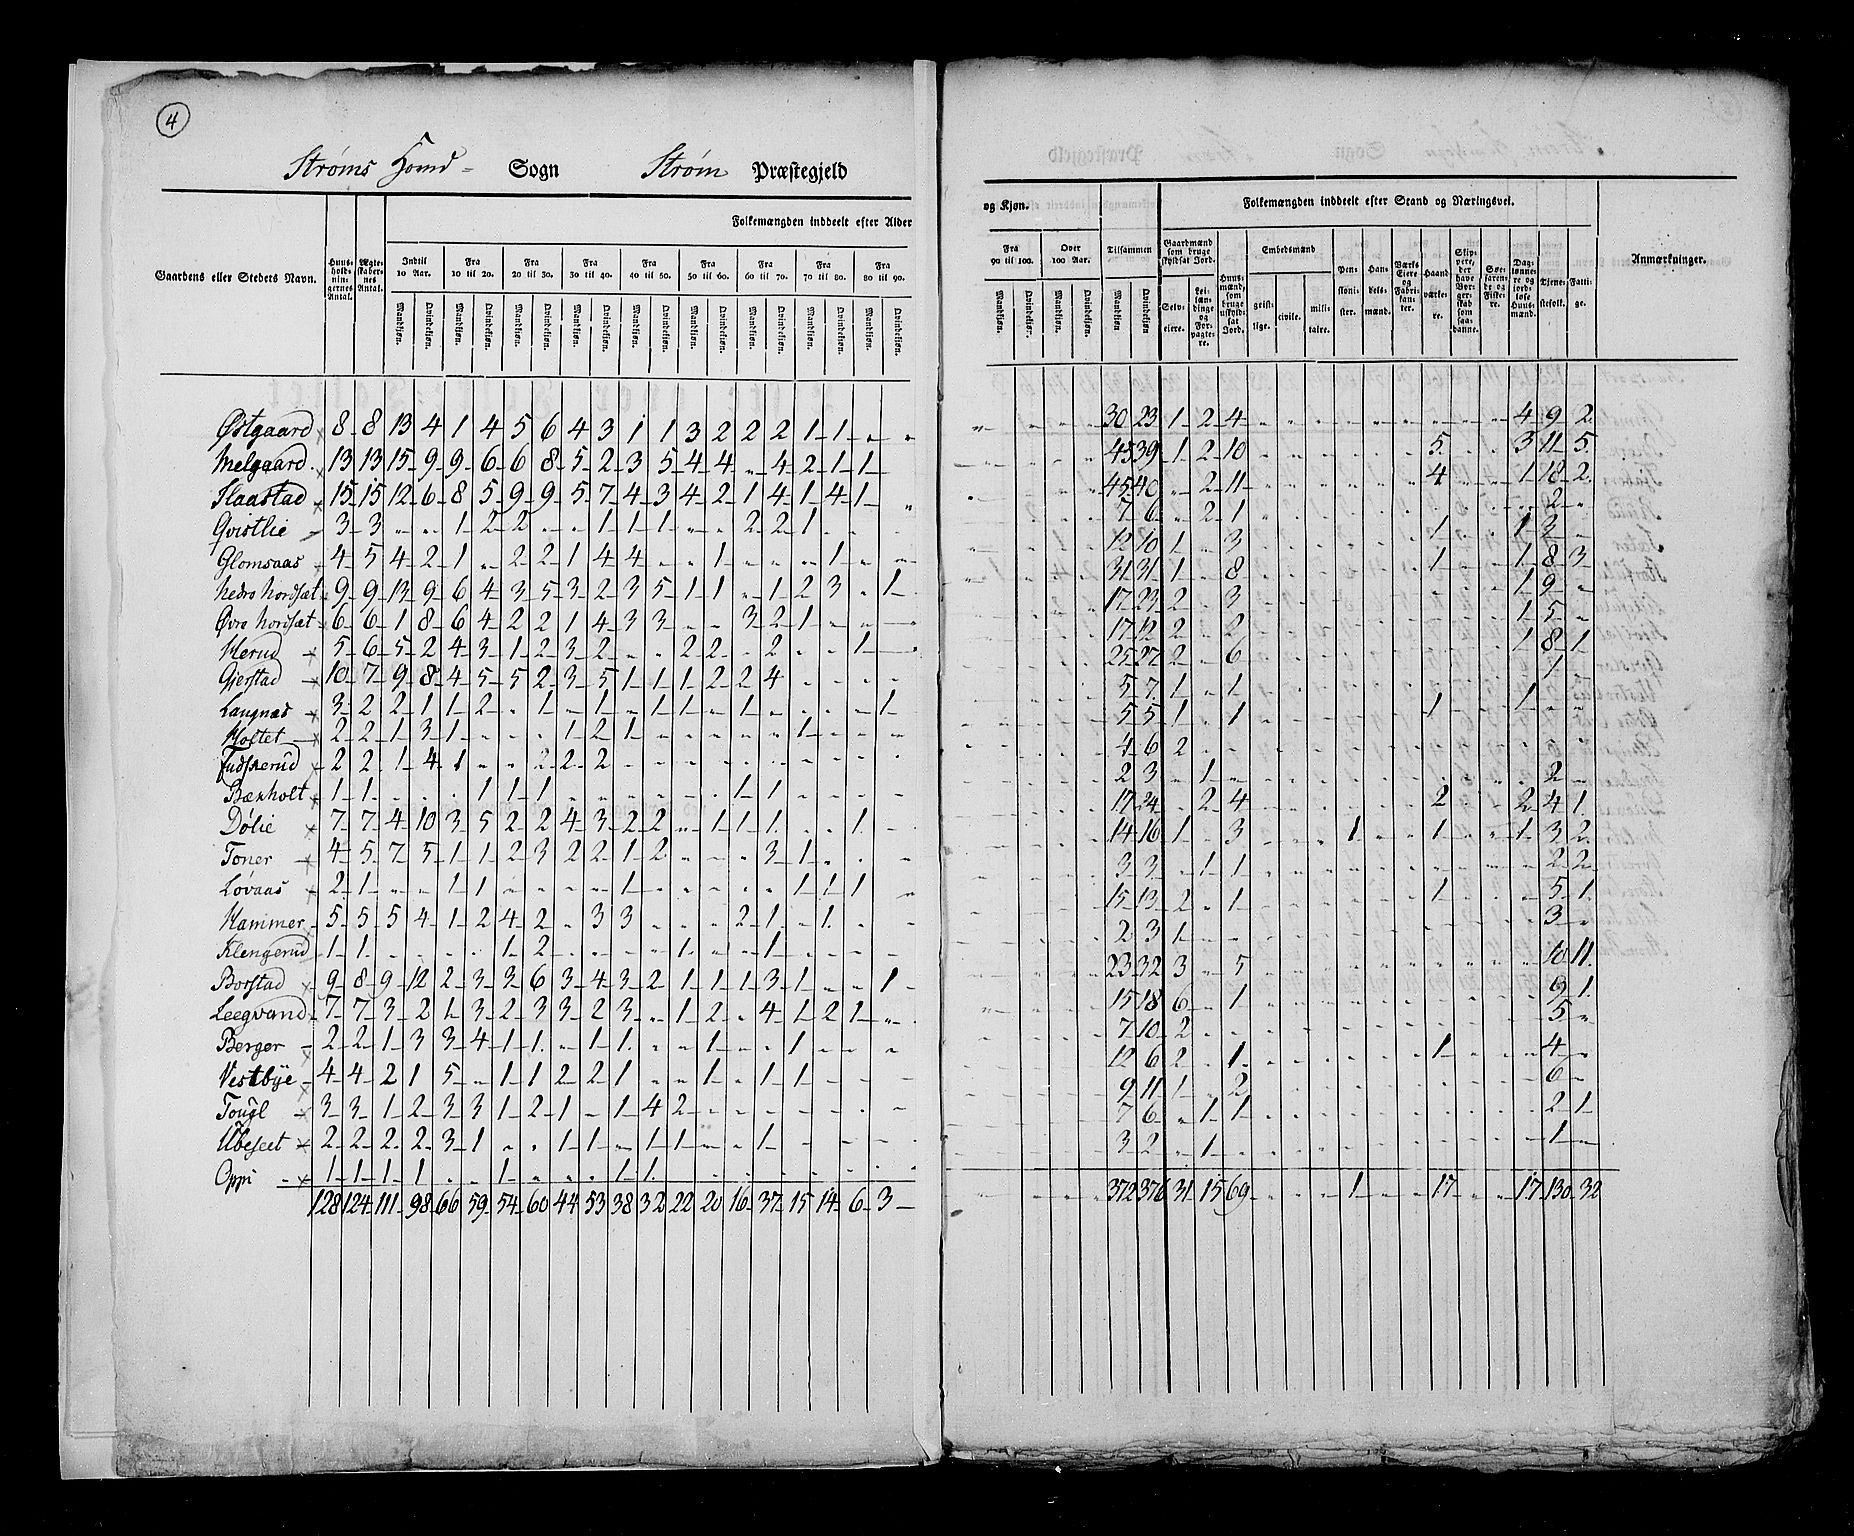 4
Strøms Hovd- Sogn Strøm Præstegjeld
Gaardens eller Steders Navn. Huusholdningernes Antal. Ægteskabernes Antal. Folkemængden inddeelt efter Alder
Indtil 10 Aar. Fra 10 til 20. Fra 20 til 30. Fra 30 til 40. Fra 40 til 50. Fra 50 til 60. Fra 60 til 70. Fra 70 til 80. Fra 80 til 90.
Mandkiøn. Qvindekiøn. Mandkiøn. Qvindekiøn. Mandkiøn. Qvindekiøn. Mandkiøn. Qvindekiøn. Mandkiøn. Qvindekiøn. Mandkiøn. Qvindekiøn. Mandkiøn. Qvindekiøn. Mandkiøn. Qvindekiøn. Mandkiøn. Qvindekiøn.
Østgaard 8 8 13 4 1 4 5 6 4 3 1 1 3 2 2 2 1 1 " "
Melgaard 13 13 15 9 9 6 6 8 5 2 3 5 4 4 " 4 2 1 1
Flaastad 15 15 12 6 8 5 9 9 5 7 4 3 4 2 1 4 1 4 1 "
Qvistlie 3 3 " " 1 2 2 " " 1 1 1 " " 2 2 1
Glomsaas 4 5 4 2 1 " 2 2 1 4 4 " " 1 " " " 1 " "
Nedro Nordsæt 9 9 13 9 6 4 3 5 3 2 3 5 1 1 " 1 2 3 " 1
Øvro Nordsæt 6 6 1 8 6 4 2 2 1 4 3 3 " " 3 2 1 " "
Herud 5 6 5 2 4 3 1 2 3 2 " " 2 2 " 2 " " 1
Gjerstad 10 7 9 8 4 5 5 2 3 5 1 1 1 2 2 4 " " " "
Langnæs 3 2 2 1 1 2 " 1 " 1 " 1 1 " 1 " " " " 1
Holtet 2 2 1 3 1 " " " 1 2 1 " " " " " 1 " "
Fudskerud 2 2 1 4 1 " " 2 2 2
Bæxholt 1 1 " " " 1 1 1 " " " " " " 1 1 " " " "
Dølie 7 7 4 10 3 5 2 2 4 3 2 2 " 1 1 1 " " 1 "
Toner 4 5 7 5 1 1 2 3 2 2 1 2 " " " 3 1 " "
Løvaas 2 1 " " 1 1 " " " " 1 " " " " " 1 1 1 "
Hammer 5 5 5 4 1 2 4 2 " 3 3 " " " 2 1 " 1 " "
Klengerud 1 1 " " " " 1 2 " " " " 1 " " 1 " " " "
Borstad 9 8 9 12 2 3 3 6 3 4 3 2 1 1 1 3 1 " " 1
Leegvand 7 7 3 2 1 3 2 3 3 2 3 " 1 2 " 4 1 2 1 "
Berger 2 2 1 3 3 4 1 1 " 1 1 " " 1 " " 1 " " "
Vestbye 4 4 2 1 5 " 1 1 2 2 1 " " 1 " 1 1
Tougl 3 3 1 2 3 3 1 2 1 " 1 4 2
Ubeseet 2 2 2 2 3 1 " " 1 1 " 1 1 " 1
Oppi 1 1 1 1 " " 1 " " " 1 1
128 124 111 98 66 59 54 60 44 53 38 32 22 20 16 37 15 14 6 3
og Kjøn. Folkemængden inddeelt efter Stand og Næringsvei.
Fra 90 til 100. Over 100 Aar. Tilsammen Gaardmænd som bruge skyldsat Jord. Huusmænd, som bruge uskyldsat Jord. Embedsmænd Pensionister. Handelsmænd. Værks Eiere og Fabrikanter. Haandværkere. Skippere, der have Borgerskab som saadanne. Søefarende og Fiskere. Daglønnere og jordløse Huusmænd. Tjenestefolk. Fattige. Anmærkninger.
Mandkiøn. Qvindekiøn. Mandkiøn. Qvindekiøn. Mandkiøn Qvindekiøn. Selveiere. Leilændinge og Forpagtere. geistlige. civile. militaire.
30 23 1 2 4 4 9 2
45 39 1 2 10 5 3 11 5
45 40 " 2 11 4 1 18 2
7 6 " 2 1 2 "
12 10 1 " 3 1 1 3
31 31 1 " 8 1 1 8 3
17 23 2 " 3 1 9 "
17 12 2 " 2 1 5 "
25 27 2 " 6 1 8 1
5 7 1 " 1 1
5 5 1 " 1 1 1 " "
4 6 2
2 3 " 1 2
17 24 " 2 4 2 2 4 1
14 16 1 " 3 1 1 1 3 2
3 3 " 1 1 2 2
15 13 2 " 1 1 5 1
2 3 1 3 "
23 32 3 " 5 10 11
15 18 6 " 1 9 1
7 10 2 5 "
12 6 2 " 1 1 4 "
9 11 1 " 2 6 "
7 6 " 1 1 2 1
3 2 " 1 1
372 376 31 15 69 1 17 17 130 32